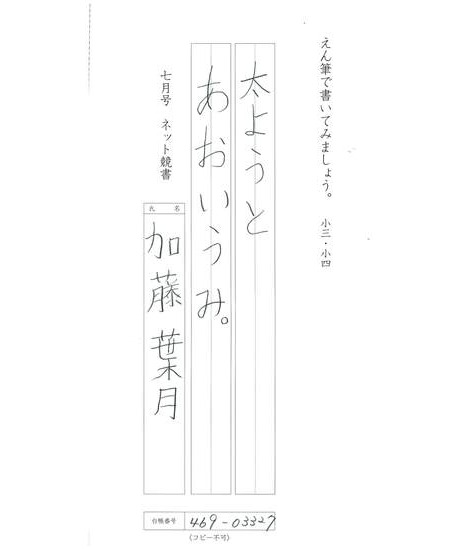 えん筆で書いてみましょう。　小三・小四
太ようと
あおいうみ。
七月号　ネット競書
氏名
加藤葉月
台帳番号 469-03327
(コピー不可)